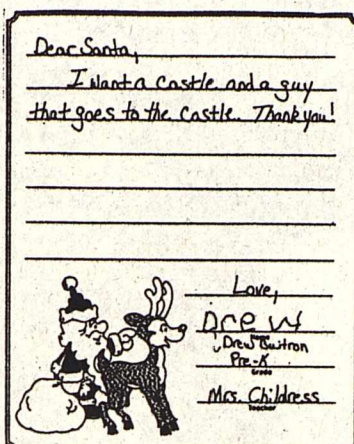 Dear Santa,
I want a castle and a guy
that goes to the castle. Thank you!
Love,
Drew
Drew Buitron
Pre-K
Grade
Mrs. Childress
Teacher